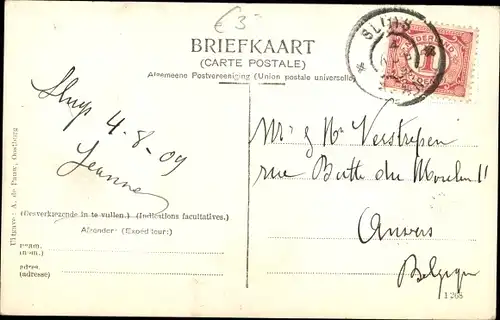 €3-
BRIEFKAART
(CARTE POSTALE)
Algemeene Postvereeniging (Union postale universelle)
SLUIS
NEDERLAND
1
CENT
Sluys 4-8-09
Jeanne
Mr & Me Verstrepen
rue Batte du Moulin 11
Anvers
Belgique
(Desverkiezende in te vullen.) (Indications facultatives.)
Afzender: (Expéditeur:)
naam.
(nom.)
adres.
(adresse)
Uitgave: A. de Pauw, Oostburg
1208